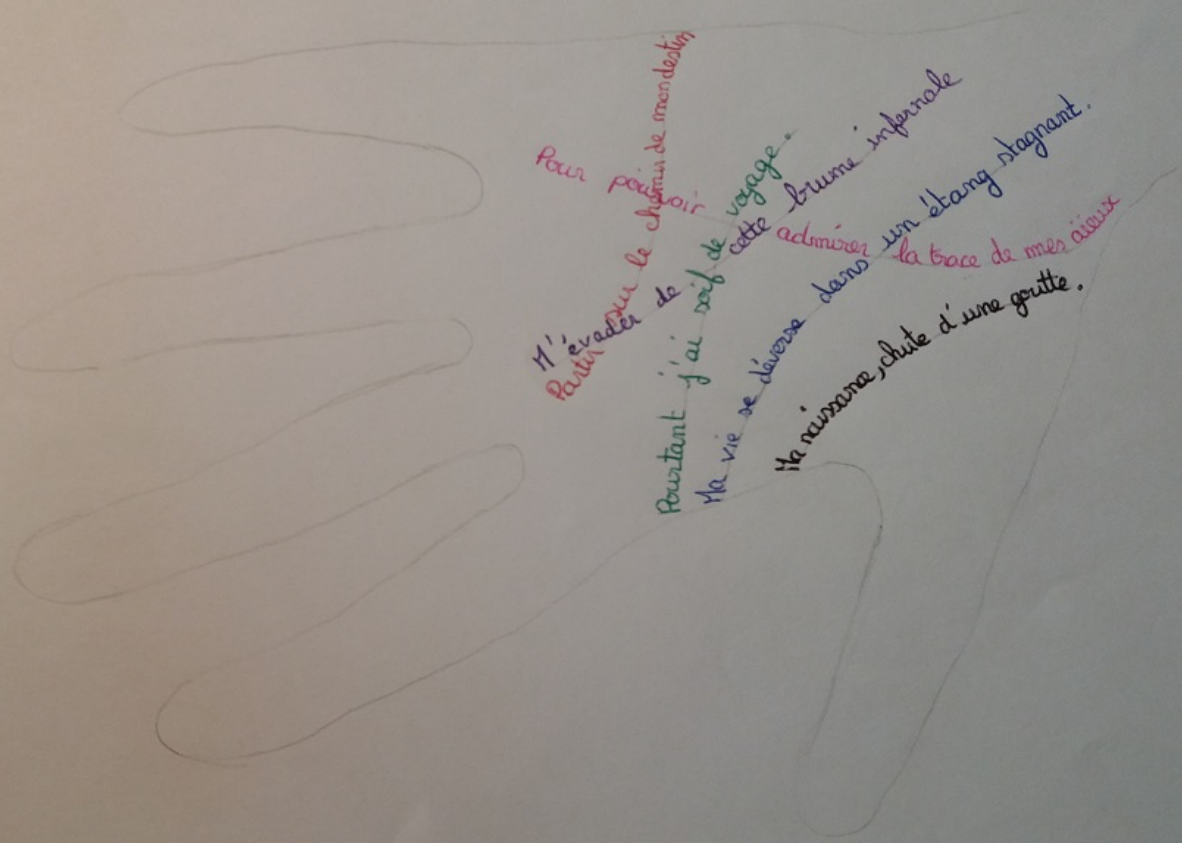 Ma naissance, chute d'une goutte.
Ma vie se déverse dans un étang stagnant.
Pourtant j'ai soif de voyage.
M'évader de cette brume infernale
Partir sur le chemin de mon destin
Pour pouvoir admirer la trace de mes aïeux